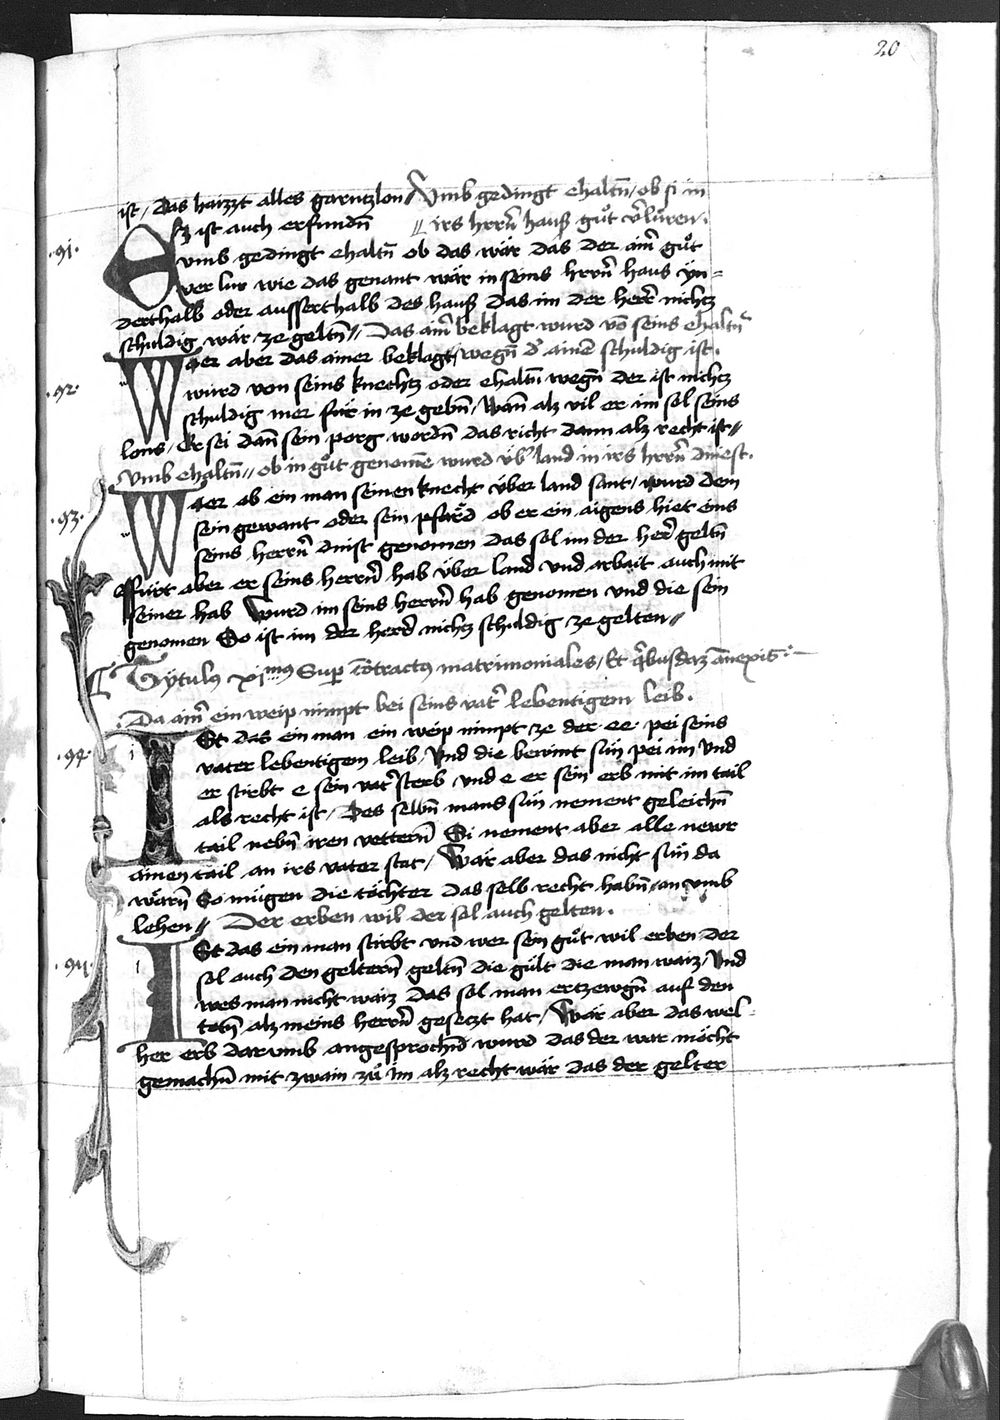 20
ist / das haizzt alles garntzlon / Vmb gedingt ehaltñ / ob si in
Ez ist auch erfundñ // irs hrrñ hauß gůt v̉lüren.
.91. vmb gedingt ehaltñ ob das wär das der aim̉ gůt
ver lur wie das genant wär in seins hrrñ haus yn=
derthalb oder ausserthalb des hauß das im der herr̉ nichtz
schuldig wär ze geltñ // Das aim̉ beklagt wurd võ seins ehaltñ
.92. Waer aber das ainer beklagt / wegñ d̉ ainẽ schuldig ist.
wurd von seins knechtz oder ehaltñ wegñ der ist nichtz
schuldig mer für in ze gebñ / Wañ alz vil er im sol seins
lons / Er sei dañ sein porg wordñ das richt dann alz recht ist //
Vmb ehaltñ // ob in gůt genomẽ wurd v̈b̉ land in irs hrrñ dinest.
.93. Waer ob ein man seinen knecht v̈ber land sant / wurd dem
sein gewant oder sein pfärd ob er ein aigens hiet eins
seins herrñ dinst genomen das sol im der her̉ geltñ
Ffürt aber er seins herrñ hab v̈ber land vnd arbait auch mit
seiner hab Wurd im seins herrñ hab genomen vnd die sein
genomen So ist im der herr̉ nichtz schuldig ze gelten //
Tytulus xjmus Sup̱ cõtractus matrimoniales / Et q̉busdaz ãnexis :—
Da aim̉ ein weip nimpt bei seins vat̉ lebentigem leib.
.94. ISt das ein man ein weip nimpt ze der ee. pei seins
vater lebentigem leib / Vnd die bewint sün pei im Vnd
er stirbt e sein vat̉ sterb vnd e er sein erb mit im tail
als recht ist / Des selbñ mans sün nement geleichñ
tail nebñ iren vetterñ Si nement aber alle newr
ainen tail an irs vater stat / Wär aber das nicht sün da
wärñ So mügen die töchter das selb recht habñ / on vmb
lehen // Der erben wil der sol auch gelten.
.95. ISt das ein man stirbt vnd wer sein gůt wil erben der
sol auch den gelterñ geltñ die gült die man waiz / Vnd
wes man nicht waiz das sol man ertzewgñ auf den
totñ alz meins herrñ gesetzt hat / Wär aber das wel=
her erb darvmb angesprochñ wurd das der war möcht
gemachñ mit zwain zů im alz recht wär das der gelter